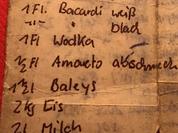 1 Fl. Bacardi weiß
" black
1 Fl Wodka
½ Fl Amareto abschmecken
1½ l Baleys
2 kg Eis
2 l Milch